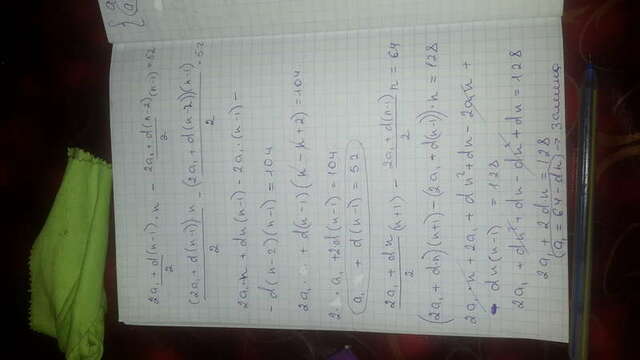 { a
( a
2a₁ + d(n-1)/2 · n - 2a₁ + d(n-2)/2 (n-1) = 52
(2a₁ + d(n-1)) n/2 - (2a₁ + d(n-2))(n-1)/2 = 52
2a₁ · n + dn(n-1) - 2a₁ · (n-1) -
- d(n-2)(n-1) = 104
2a₁ + d(n-1)(n-n+2) = 104
2a₁ + 2d(n-1) = 104
a₁ + d(n-1) = 52
2a₁ + dn/2 (n+1) - 2a₁ + d(n-1)/2 n = 64
(2a₁ + dn)(n+1) - (2a₁ + d(n-1)) · n = 128
2a₁ · n + 2a₁ + dn² + dn - 2a₁n +
- dn(n-1) = 128
2a₁ + dn² + dn - dn² + dn = 128
2a₁ + 2dn = 128
(a₁ = 64 - dn) → Замена